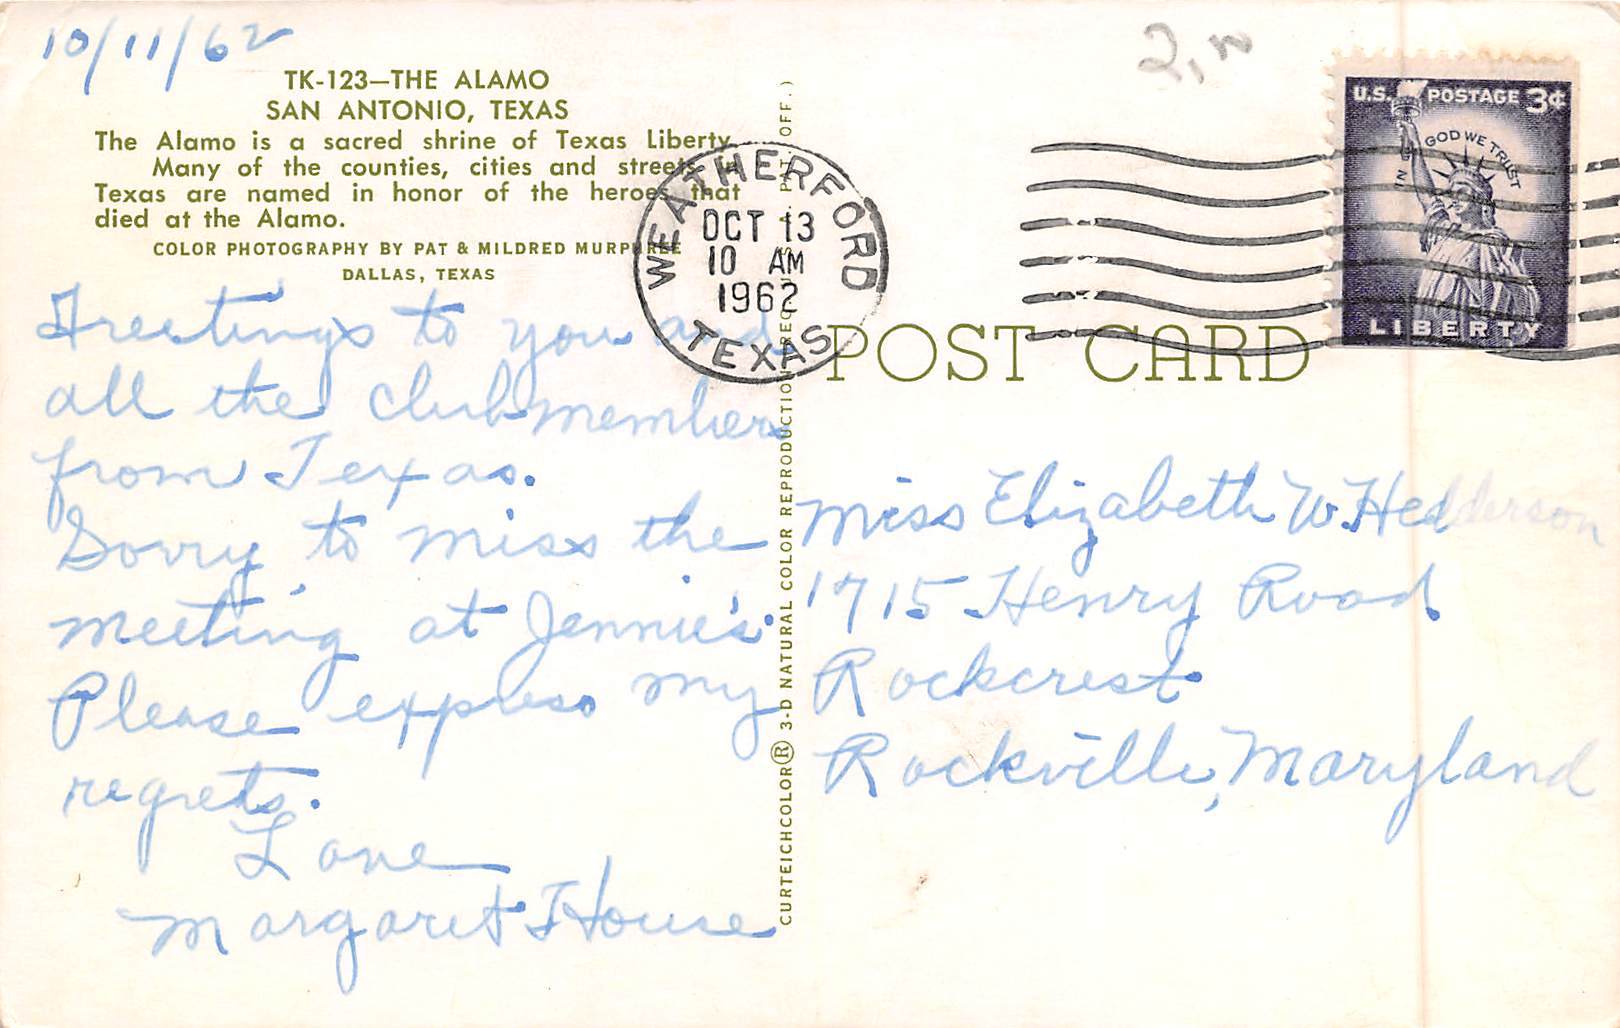 10/11/62
TK-123—THE ALAMO
SAN ANTONIO, TEXAS
The Alamo is a sacred shrine of Texas Liberty.
Many of the counties, cities and streets in
Texas are named in honor of the heroes that
died at the Alamo.
COLOR PHOTOGRAPHY BY PAT & MILDRED MURPHREE
DALLAS, TEXAS
Greetings to you and
all the club members
from Texas.
Sorry to miss the
meeting at Jennie's.
Please express my
regrets.
Love
Margaret House
CURTEICHCOLOR® 3-D NATURAL COLOR REPRODUCTION (REG. U.S.A. PAT. OFF.)
WEATHERFORD
OCT 13
10 AM
1962
TEXAS
POST CARD
U.S. POSTAGE 3¢
IN GOD WE TRUST
LIBERTY
Miss Elizabeth W. Hedderson
1715 Henry Road
Rockcrest
Rockville, Maryland